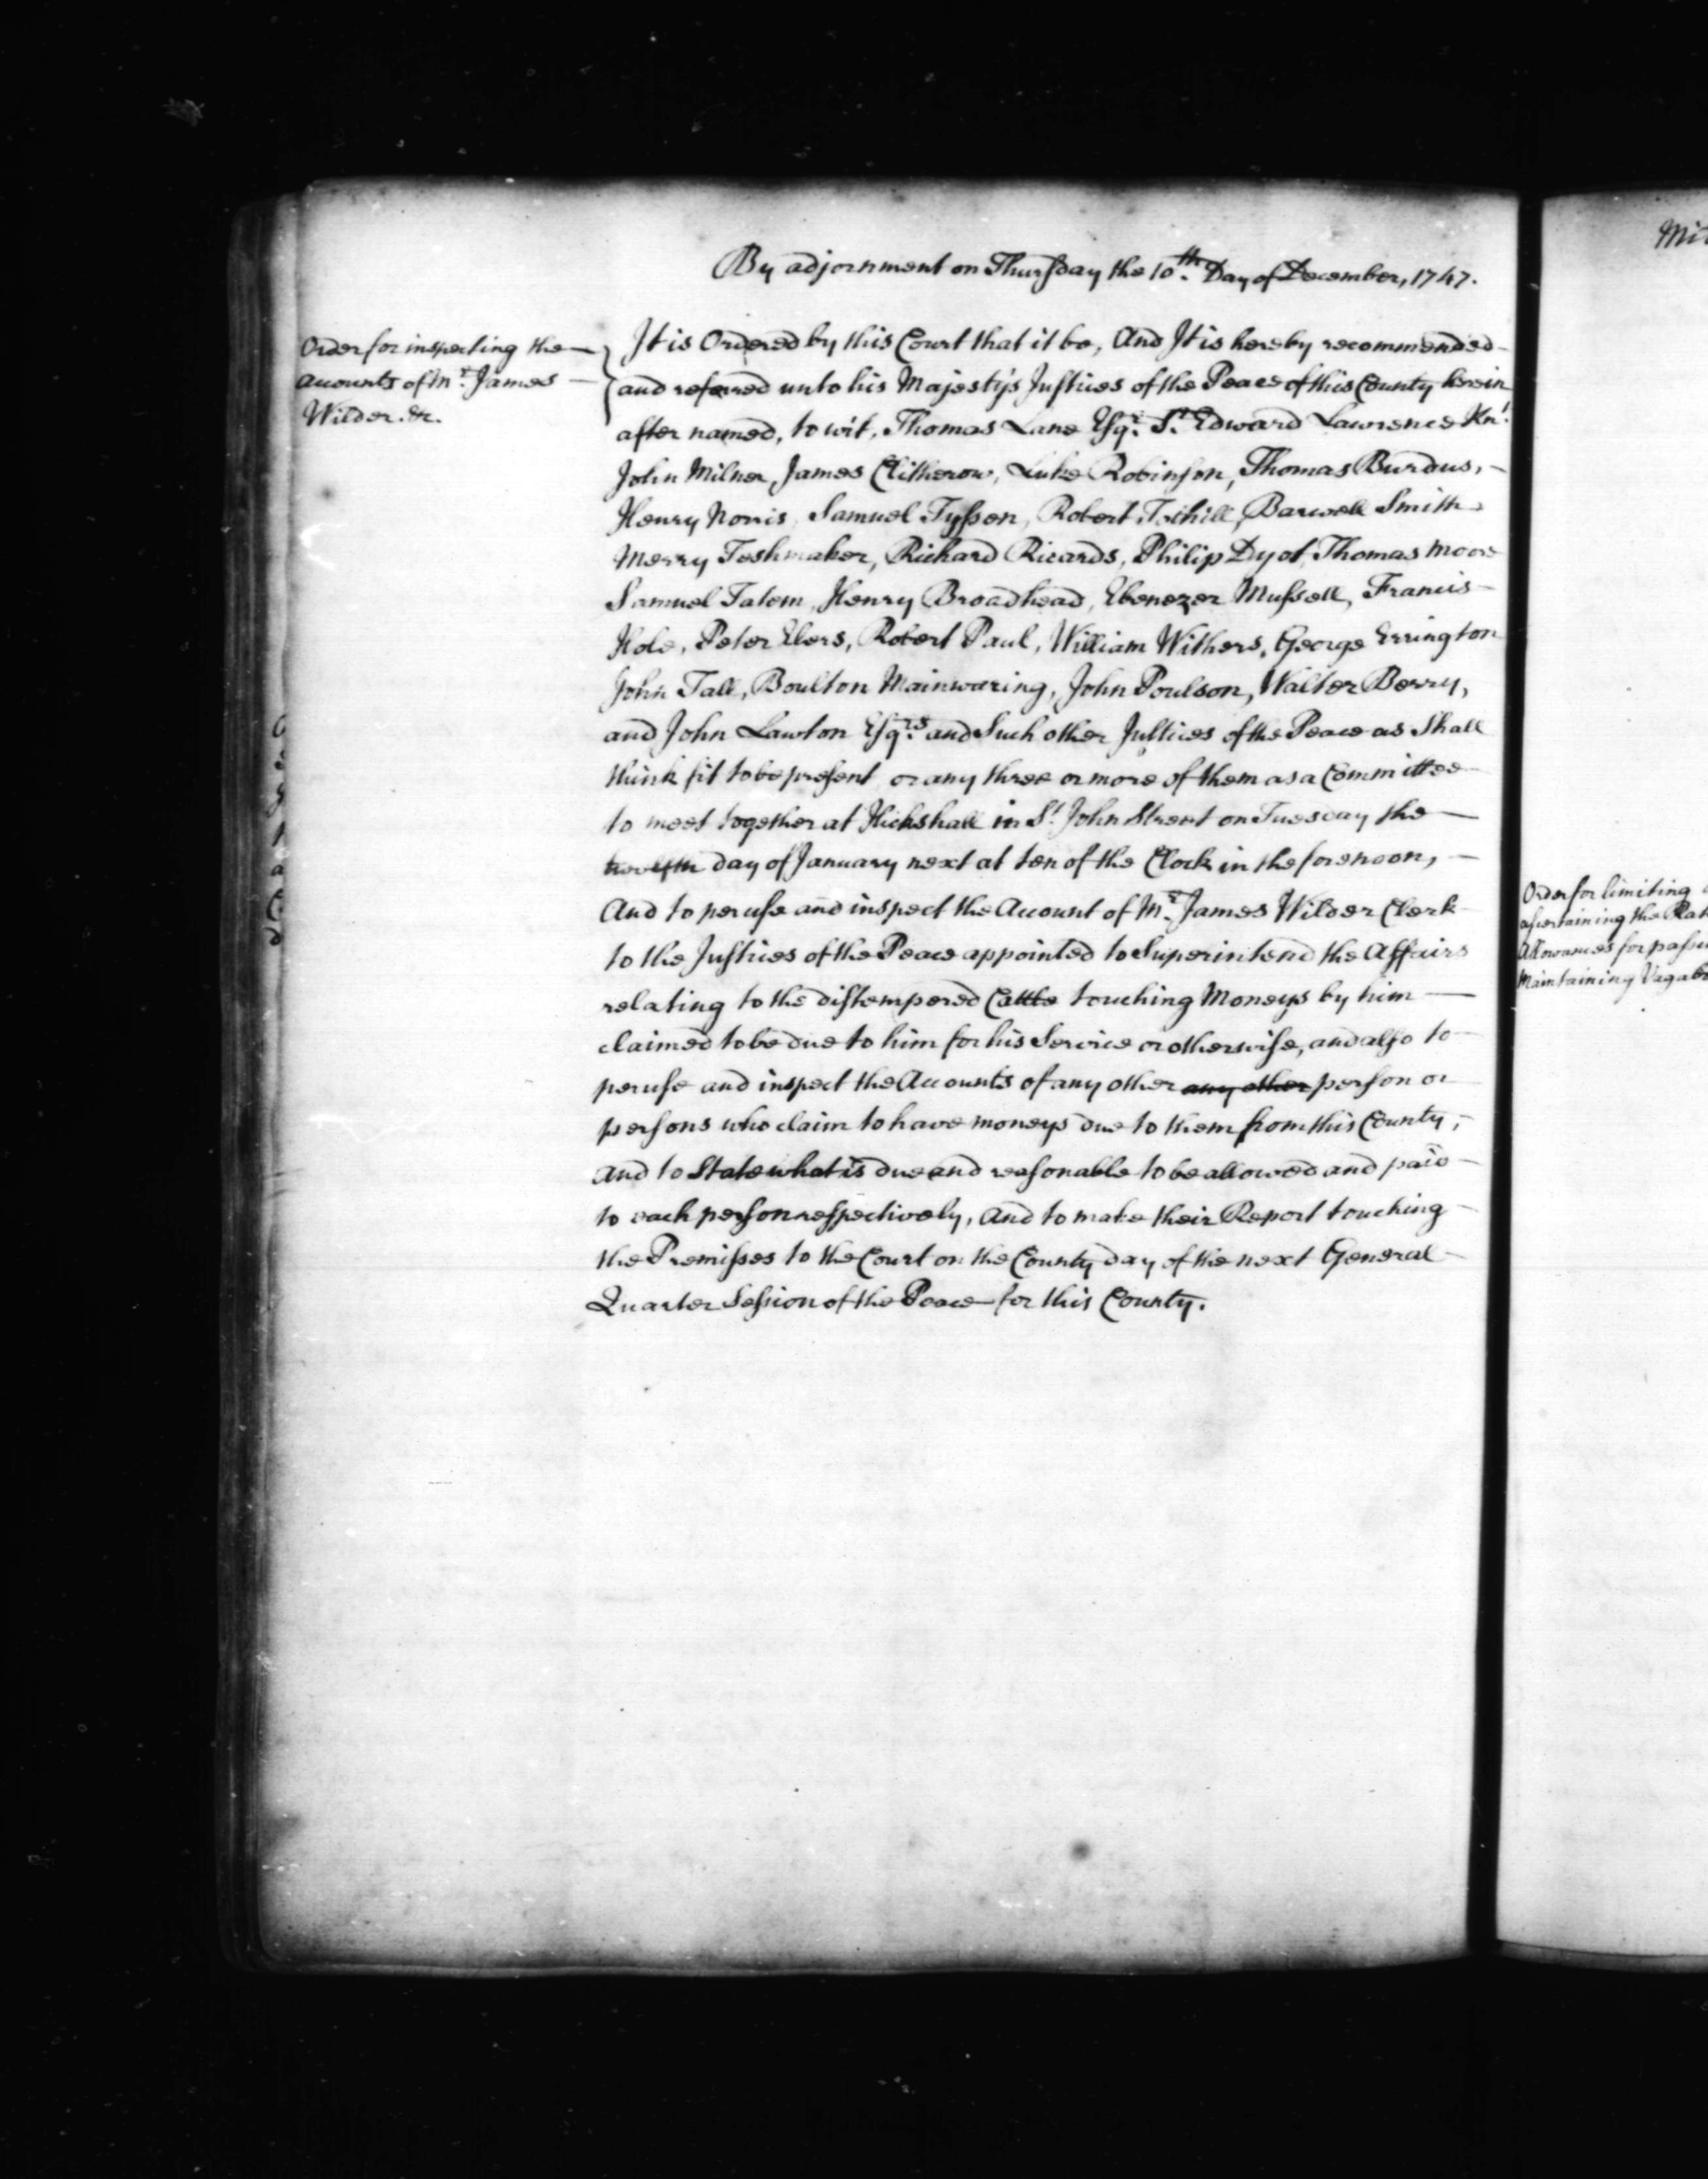 By adjornment on Thursday the 10th. Day of December, 1747.
Order for inspecting the
Accounts of Mr. James
Wilder. &c.
It is Ordered by this Court that it be, And It is hereby recommended
and referred unto his Majesty's Justices of the Peace of this County herein
after named, to wit, Thomas Lane Esqr. Sr. Edward Lawrence Knt.
John Milner, James Clitherow, Luke Robinson, Thomas Burdus,
Henry Norris, Samuel Tyssen, Robert Tothill, Barwell Smith
Merry Teshmaker, Richard Ricards, Philip Dyot, Thomas Moore
Samuel Tatem, Henry Broadhead, Ebenezer Mussell, Francis
Hole, Peter Elers, Robert Paul, William Withers, George Errington
John Tall, Boulton Mainwaring, John Poulson, Walter Berry,
and John Lawton Esqrs. and Such other Justices of the Peace as Shall
think fit to be present or any three or more of them as a Committee
to meet together at Hickshall in St. John Street on Tuesday the
twelfth day of January next at ten of the Clock in the forenoon,
And to peruse and inspect the Account of Mr. James Wilder Clerk
to the Justices of the Peace appointed to Superintend the Affairs
relating to the distempered Cattle touching Moneys by him
claimed to be due to him for his Service or otherwise, and also to
peruse and inspect the Accounts of any other any other person or
persons who claim to have moneys due to them from this County,
And to State what is due and reasonable to be allowed and paid
to each person respectively, And to make their Report touching
the Premisses to the Court on the County day of the next General
Quarter Session of the Peace for this County.
Order for limiting
ascertaining the
Allowances for
Maintaining